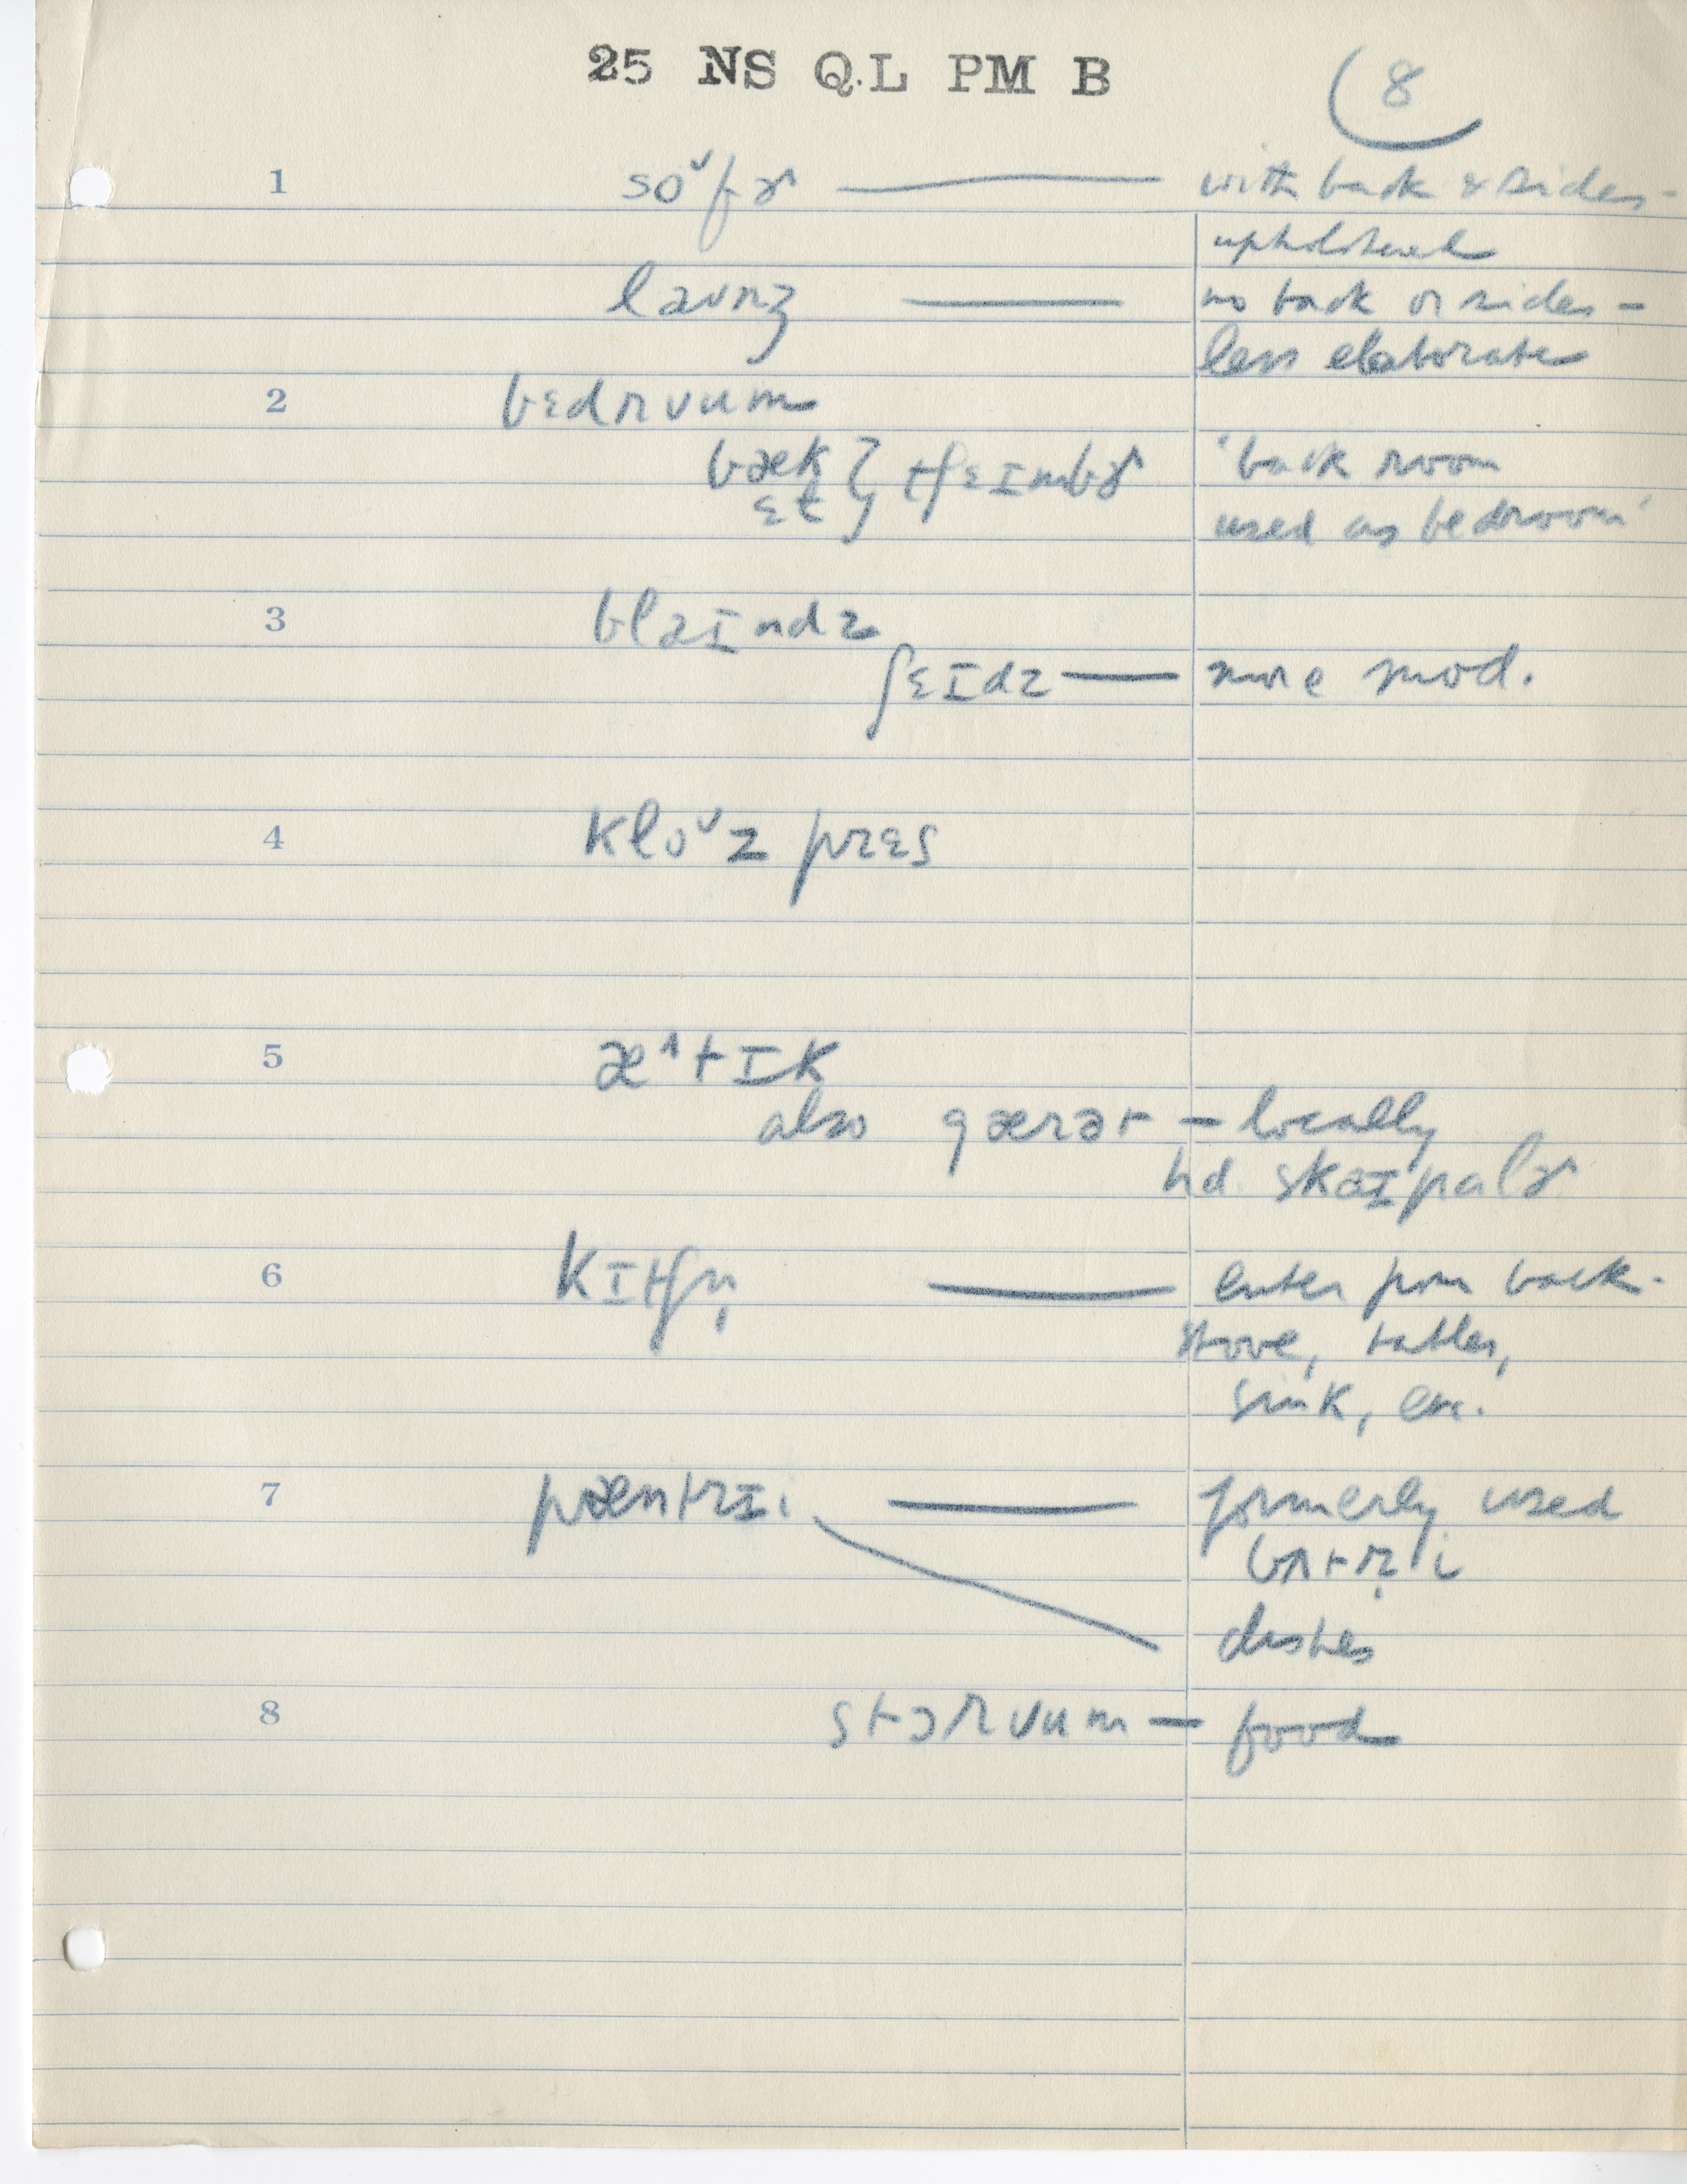 25 NS Q.L PM B
8
1 so˅fɚ — with back & sides -
upholstered
laʊnʒ — no back or sides -
less elaborate
2 bɛdrʊum
bæk } tʃɛɪmbɚ 'back room
ɛt used as bedroom'
3 blaɪndz
ʃɛɪdz — more mod.
4 klo˅z prɛs
5 æ˄tɪk
also gærət - locally
hd. skaɪpalɚ
6 kɪtʃn̩ — enter from back.
stove, tables,
sink, etc.
7 pæntrɪi — formerly used
bʌtr̩i
dishes
8 stɔrʊum — food